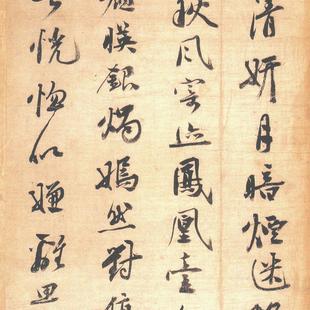 清妍月暗煙迷
秋風寄迹鳳凰臺
暎銀燭嫣然對
恍惚似嫌離思